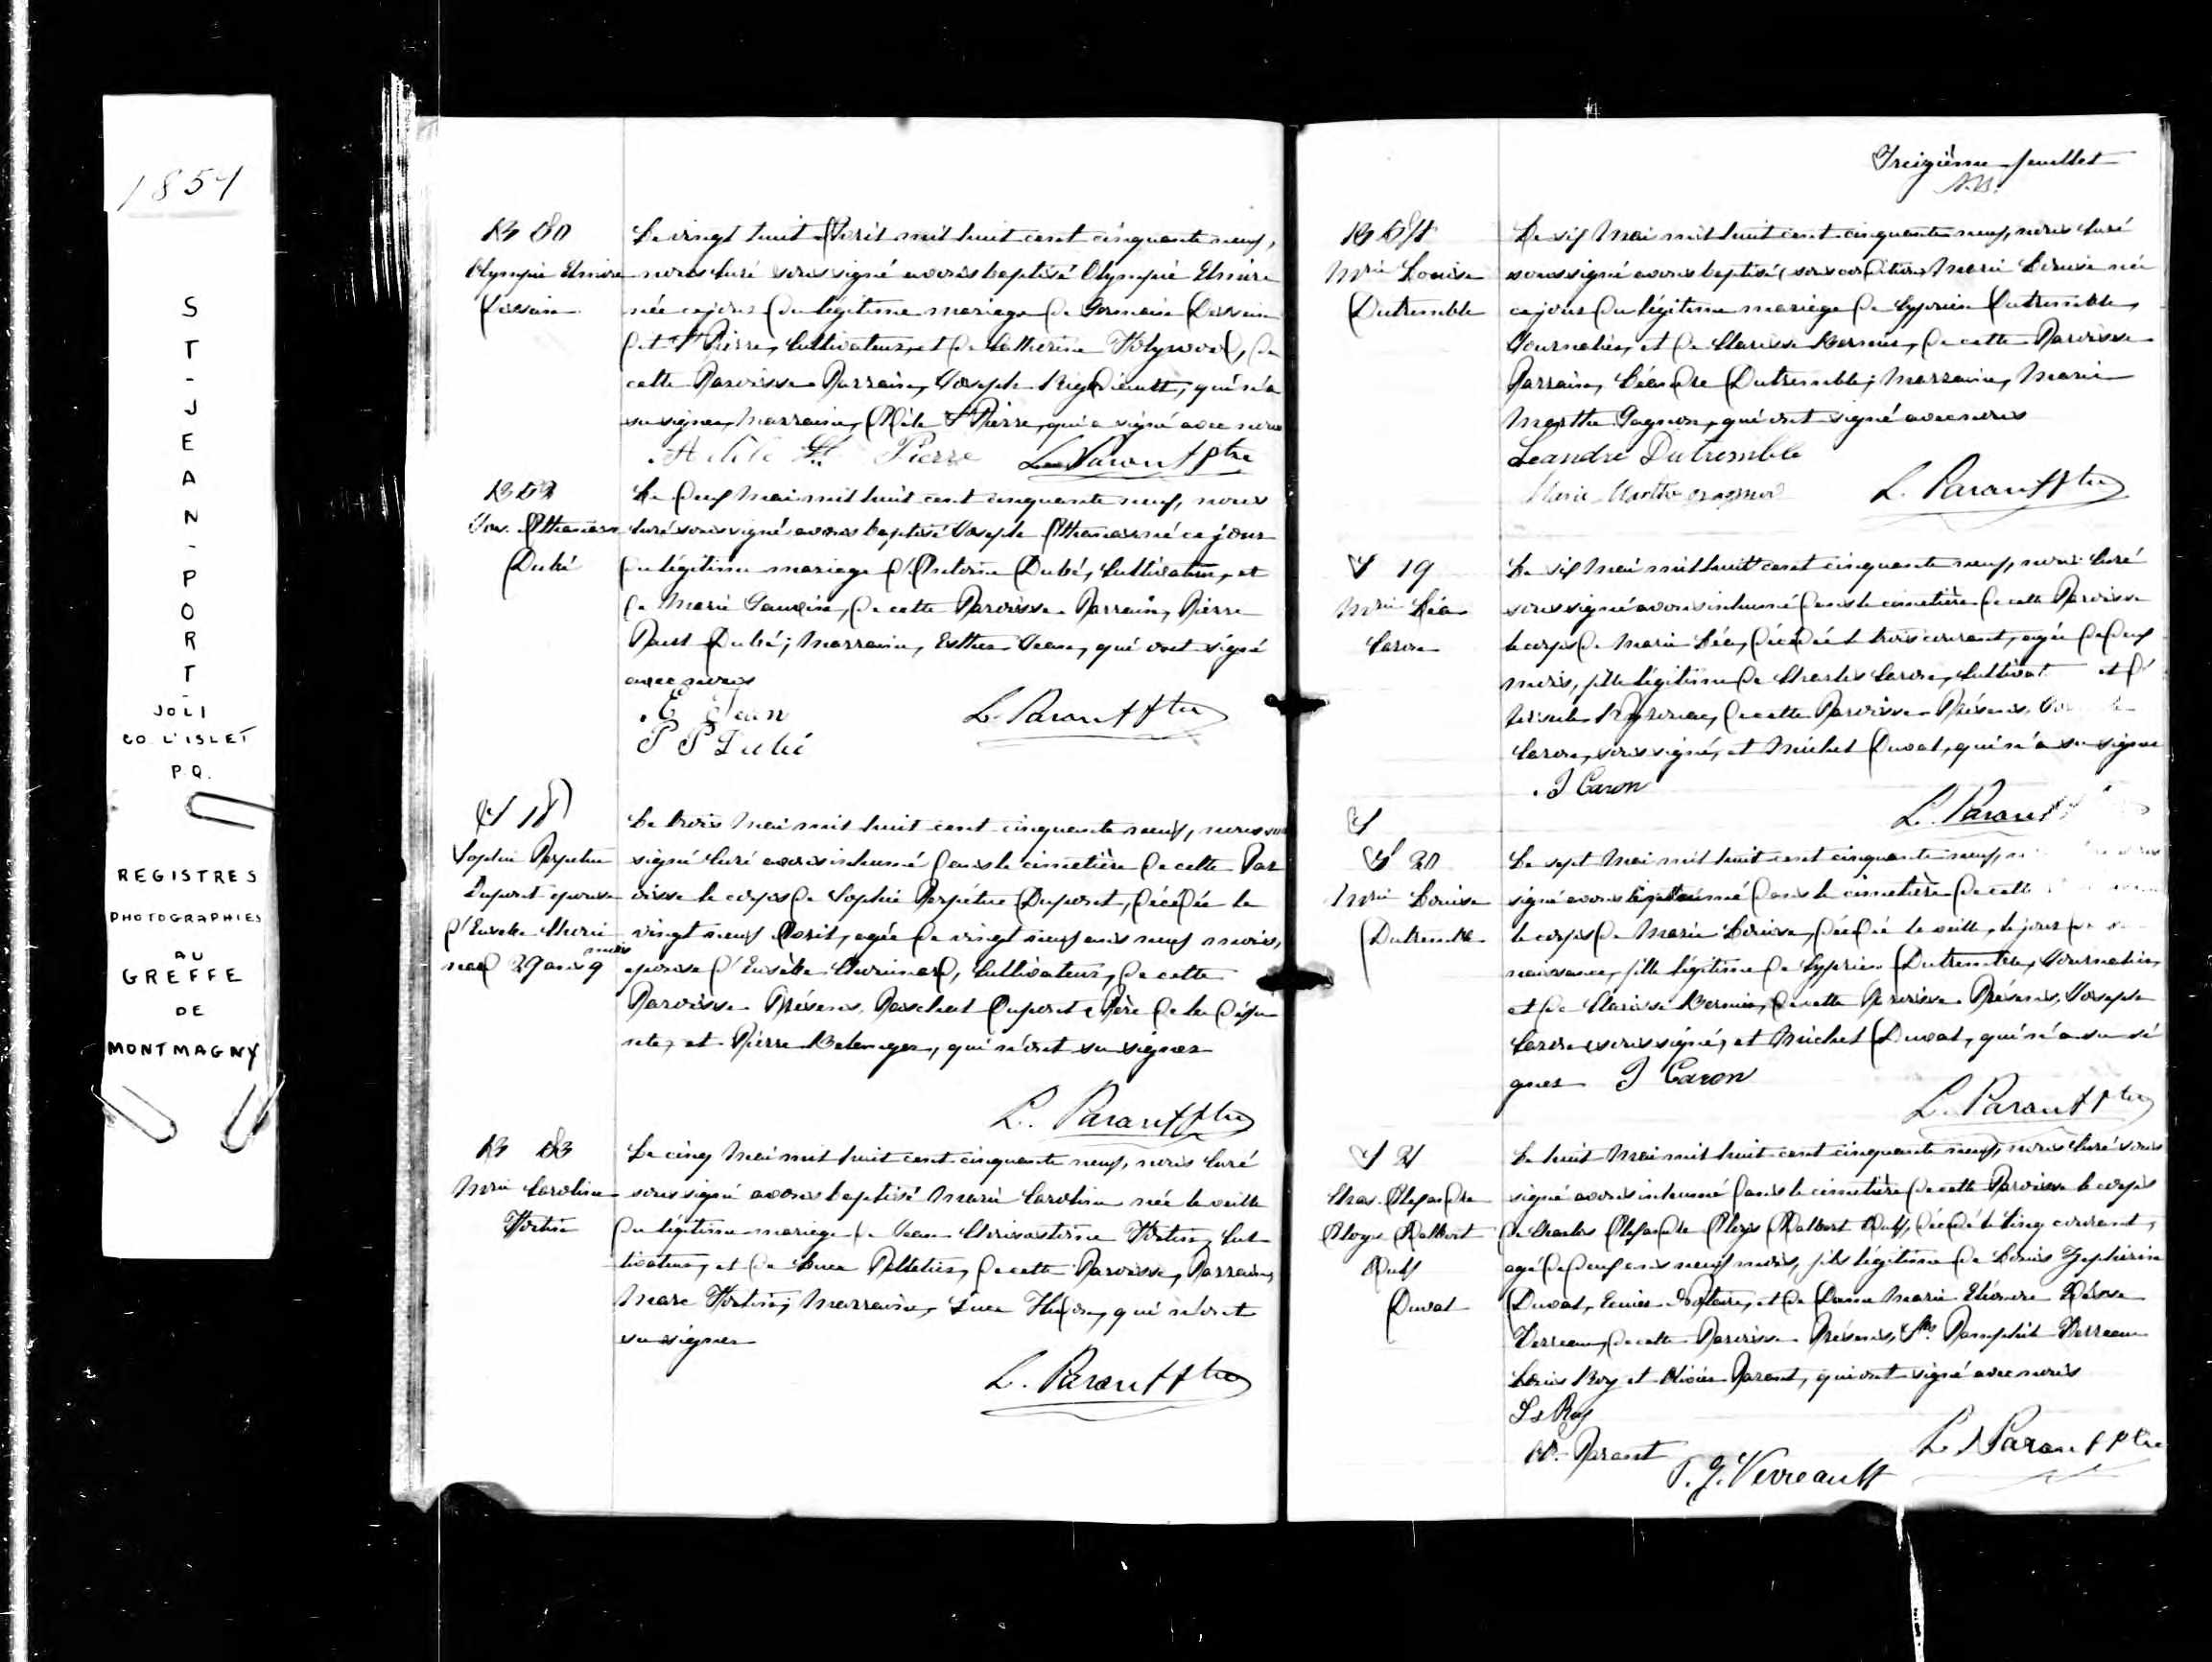 1859
ST-JEAN-PORT-
JOLI
CO L'ISLET
P.Q.
REGISTRES
PHOTOGRAPHIES
AU
GREFFE
DE
MONTMAGNY
B
Olympie Elmire
Le vingt huit Avril mil huit cent cinquante neuf,
nous Curé soussigné avons baptisé Olympie Elmire
née ce jour du légitime mariage de Germain
dit St Pierre, Cultivateur, et de Catherine de
cette Paroisse Parrain, Joseph qui n'a
su signer, Marraine, Adèle St Pierre, qui a signé avec nous
Adèle St Pierre L. Parant Ptre
B
Jos. Athanase
Dubé
Le deux Mai mil huit cent cinquante neuf, nous
Curé soussigné avons baptisé Joseph Athanase né ce jour
du légitime mariage d'Antoine Dubé, Cultivateur, et
de Marie de cette Paroisse Parrain, Pierre
Paul Dubé; Marraine, Esther Jean, qui ont signé
avec nous
E Jean
P P Dubé
L. Parant Ptre
S 18
Sophie Perpétue
Duport épouse
d'Eusèbe Choui
nard 29 ans 9 mois
Le trois Mai mil huit cent cinquante neuf, nous sous
signé Curé avons inhumé dans le cimetière de cette Par
oisse le corps de Sophie Perpétue Duport, décédée le
vingt neuf Avril, agée de vingt neuf ans neuf mois,
épouse d'Eusèbe Chouinard, Cultivateur, de cette
Paroisse Présens, Paschal Duport Père de la défun
nte, et Pierre Belanger, qui n'ont su signer
L. Parant Ptre
B
Mrie Caroline
Fortin
Le cinq Mai mil huit cent cinquante neuf, nous Curé
soussigné avons baptisé Marie Caroline née la veille
du légitime mariage de Jean Chrisostôme Fortin, Cul
tivateur, et de Luce Pelletier, de cette Paroisse, Parrain,
Marc Fortin; Marraine, Luce Hudon, qui n'ont
su signer
L. Parant Ptre
Treizième feuillet
B
Mrie Louise
Dutremble
Le six Mai mil huit cent cinquante neuf, nous Curé
soussigné avons baptisé (sous condition) Marie Louise née
ce jour du légitime mariage de Cyprien Dutremble,
Journalier, et de Clarisse Bernier, de cette Paroisse
Parrain, Léandre Dutremble; Marraine, Marie
Marthe Gagnon, qui ont signé avec nous
Leandre Dutremble
Marie Marthe Gagnon L. Parant Ptre
S 19
Mrie Léa
Caron
Le six Mai mil huit cent cinquante neuf, nous Curé
soussigné avons inhumé dans le cimetière de cette Paroisse
le corps de Marie Léa, décédée le trois courant, agée de deux
mois, fille légitime de Charles Caron, Cultivat et d'
de cette Paroisse Présens,
Caron, soussigné, et Michel Duval, qui n'a su signer
J Caron
L. Parant
S
S 20
Mrie Louise
Dutremble
Le sept Mai mil huit cent cinquante neuf,
signé avons inhumé dans le cimetière de cette
le corps de Marie Louise, décédée la veille, le jour de sa
naissance, fille légitime de Cyprien Dutremble, Journalier,
et de Clarisse Bernier, de cette Paroisse Présens, Joseph
Caron soussigné, et Michel Duval, qui n'a su si
gner J Caron
L. Parant Ptre
S 21
Chas. Alexandre
Aloys Dalbert
Duval
Le huit Mai mil huit cent cinquante neuf, nous Curé sous
signé avons inhumé dans le cimetière de cette Paroisse le corps
de Charles Alexandre Aloys Dalbert décédé le Cinq courant,
agé de deux ans neuf mois, fils légitime de Louis Zephirin
Duval, Ecuier Notaire, et de Dame Marie Eléonore
Verreau, de cette Paroisse Présens, Mrs Pamphile Verreau
Louis Roy et Olivier Parant, qui ont signé avec nous
Ls Roy
O. Parant
P. G. Verreault
L. Parant Ptre